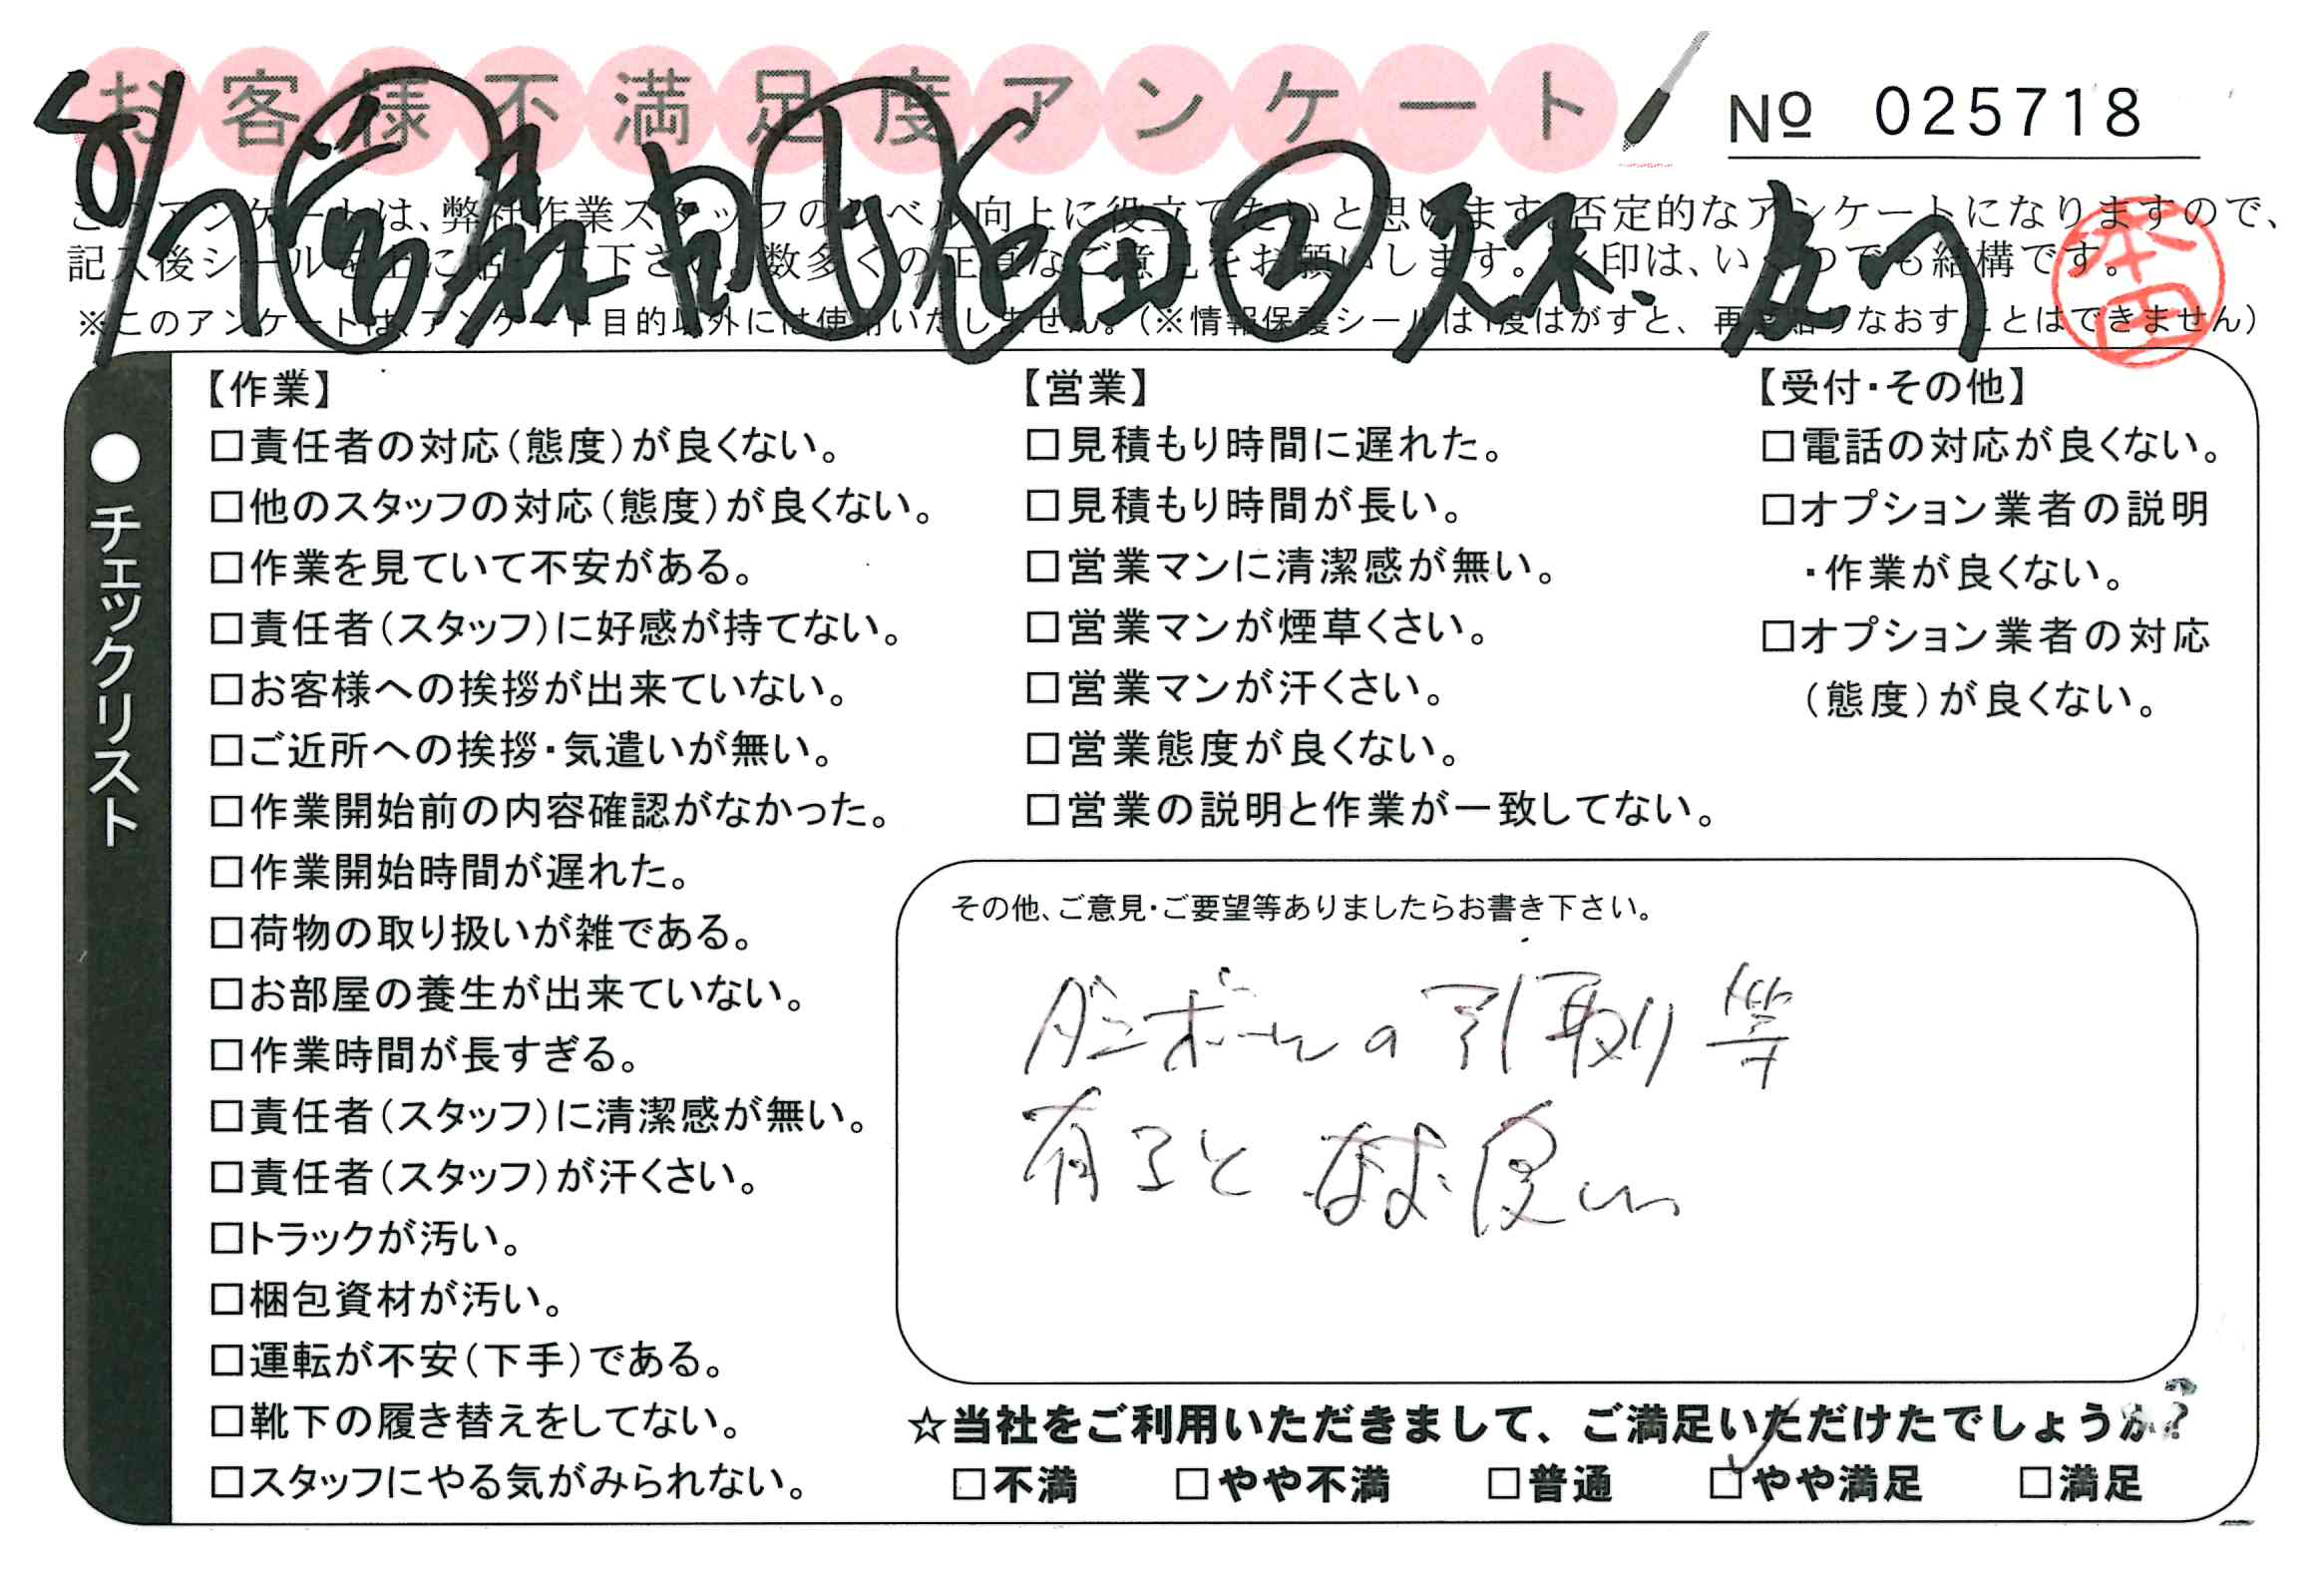 お客様不満足度アンケート
Nº 025718
このアンケートは、弊社作業スタッフのレベル向上に役立てたいと思います。否定的なアンケートになりますので、
記入後シールを上に貼って下さい。数多くの正直なご意見をお願いします。レ印は、いくつでも結構です。
※このアンケートは、アンケート目的以外には使用いたしません。(※情報保護シールは1度はがすと、再度貼りなおすことはできません)
本田
●チェックリスト
【作業】
□責任者の対応(態度)が良くない。
□他のスタッフの対応(態度)が良くない。
□作業を見ていて不安がある。
□責任者(スタッフ)に好感が持てない。
□お客様への挨拶が出来ていない。
□ご近所への挨拶・気遣いが無い。
□作業開始前の内容確認がなかった。
□作業開始時間が遅れた。
□荷物の取り扱いが雑である。
□お部屋の養生が出来ていない。
□作業時間が長すぎる。
□責任者(スタッフ)に清潔感が無い。
□責任者(スタッフ)が汗くさい。
□トラックが汚い。
□梱包資材が汚い。
□運転が不安(下手)である。
□靴下の履き替えをしてない。
□スタッフにやる気がみられない。
【営業】
□見積もり時間に遅れた。
□見積もり時間が長い。
□営業マンに清潔感が無い。
□営業マンが煙草くさい。
□営業マンが汗くさい。
□営業態度が良くない。
□営業の説明と作業が一致してない。
【受付・その他】
□電話の対応が良くない。
□オプション業者の説明
・作業が良くない。
□オプション業者の対応
(態度)が良くない。
その他、ご意見・ご要望等ありましたらお書き下さい。
ダンボールの引取り等
有ると なお良い
☆当社をご利用いただきまして、ご満足いただけたでしょうか?
□不満 □やや不満 □普通 ☑やや満足 □満足